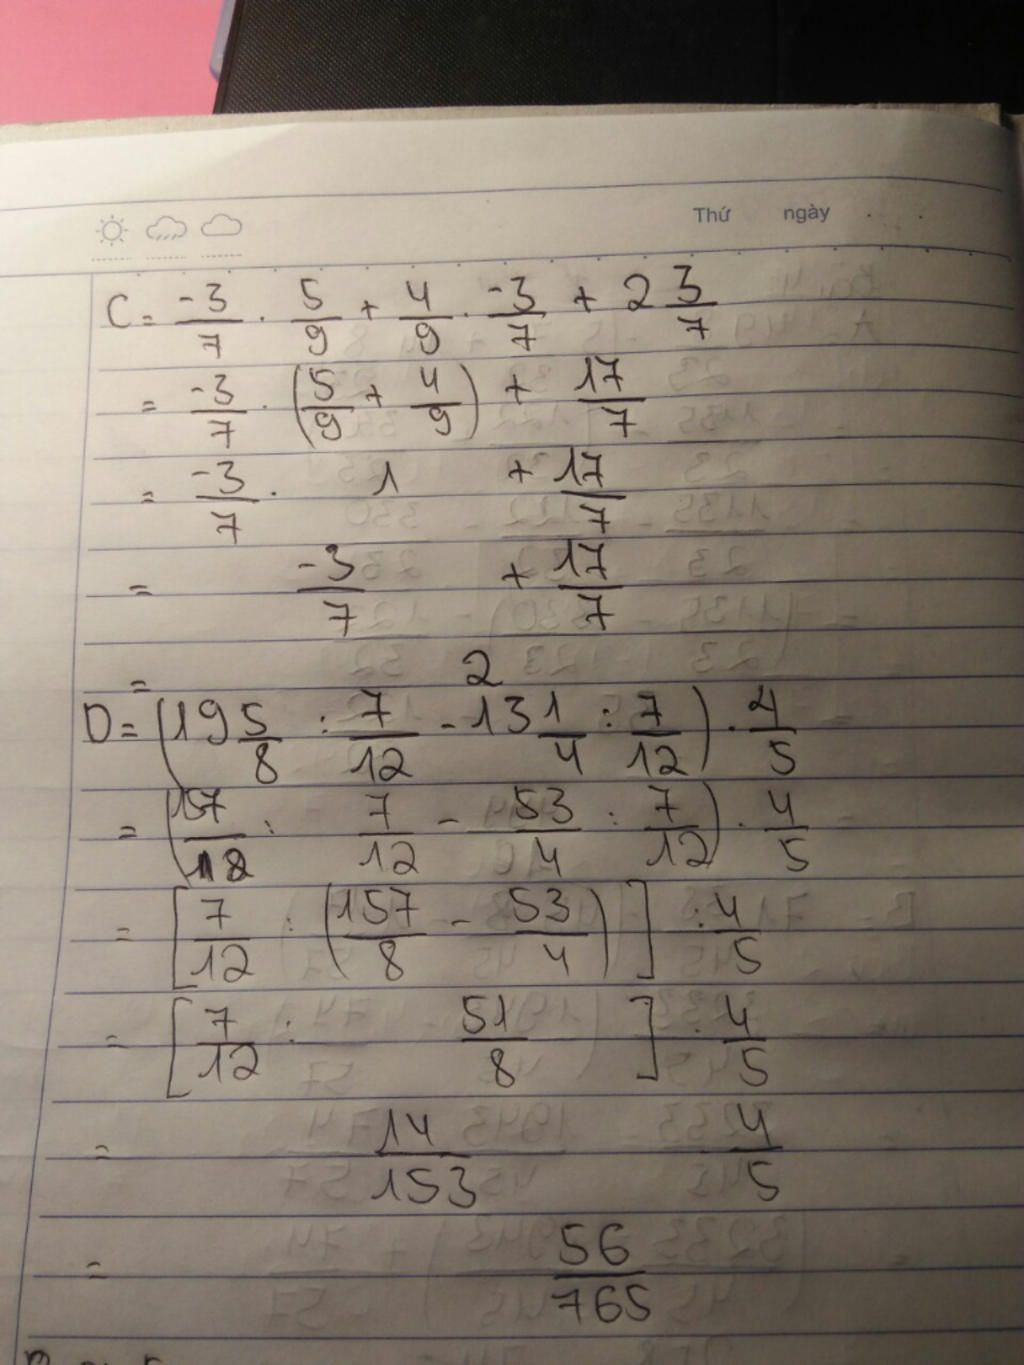 Thứ ngày
C = -3/7 . 5/9 + 4/9 . -3/7 + 2 3/7
= -3/7 . (5/9 + 4/9) + 17/7
= -3/7 . 1 + 17/7
= -3/7 + 17/7
= 2
D = (19 5/8 : 7/12 - 13 1/4 : 7/12) . 4/5
= (157/18 : 7/12 - 53/4 : 7/12) . 4/5
= [7/12 : (157/8 - 53/4)] . 4/5
= [7/12 : 51/8] . 4/5
= 14/153 4/5
= 56/765